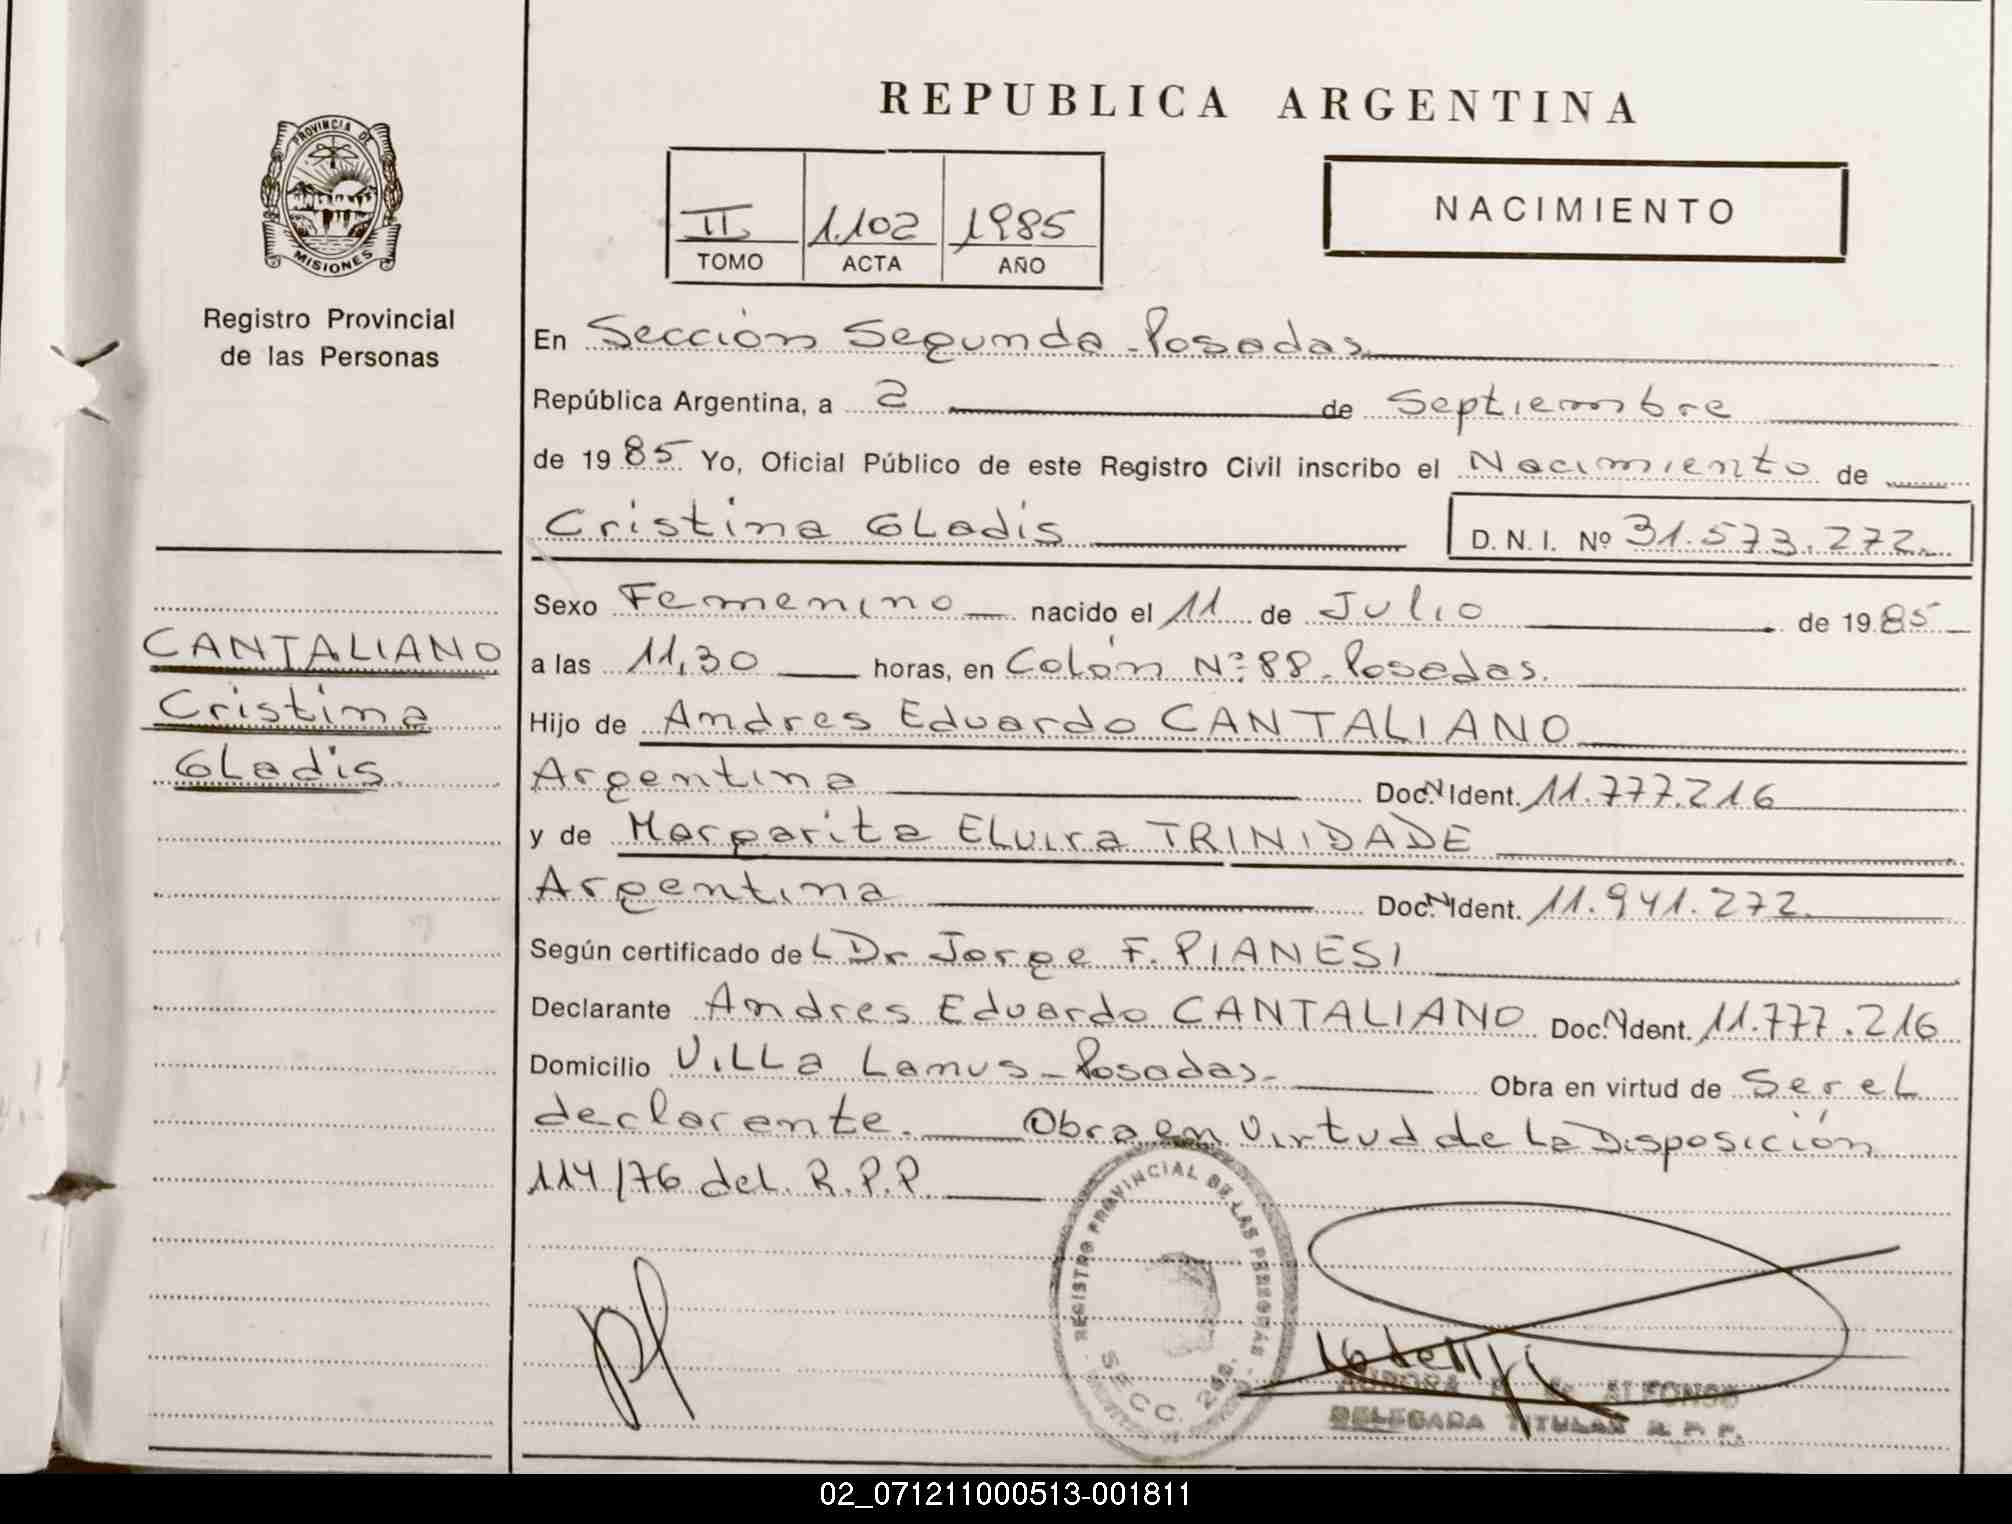 REPUBLICA ARGENTINA
PROVINCIA DE
MISIONES
Registro Provincial
de las Personas
II 1.102 1985
TOMO ACTA AÑO
NACIMIENTO
En Sección Segunda - Posadas
República Argentina, a 2 de Septiembre
de 1985 Yo, Oficial Público de este Registro Civil inscribo el Nacimiento de
Cristina Gladis D. N. I. Nº 31.573.272.
CANTALIANO
Cristina
Gladis
Sexo Femenino nacido el 11 de Julio de 1985
a las 11,30 horas, en Colón Nº 88 - Posadas.
Hijo de Andres Eduardo CANTALIANO
Argentina Doc. N Ident. 11.777.216
y de Margarita Elvira TRINIDADE
Argentina Doc. N Ident. 11.941.272.
Según certificado del Dr Jorge F. PIANESI
Declarante Andres Eduardo CANTALIANO Doc. N Ident. 11.777.216
Domicilio Villa Lanus - Posadas - Obra en virtud de Ser el
declarante. Obra en Virtud de la Disposición
114/76 del R.P.P.
REGISTRO PROVINCIAL DE LAS PERSONAS
SECC. 2da.
ALFONSO
DELEGADA TITULAR R. P. P.
02_071211000513-001811